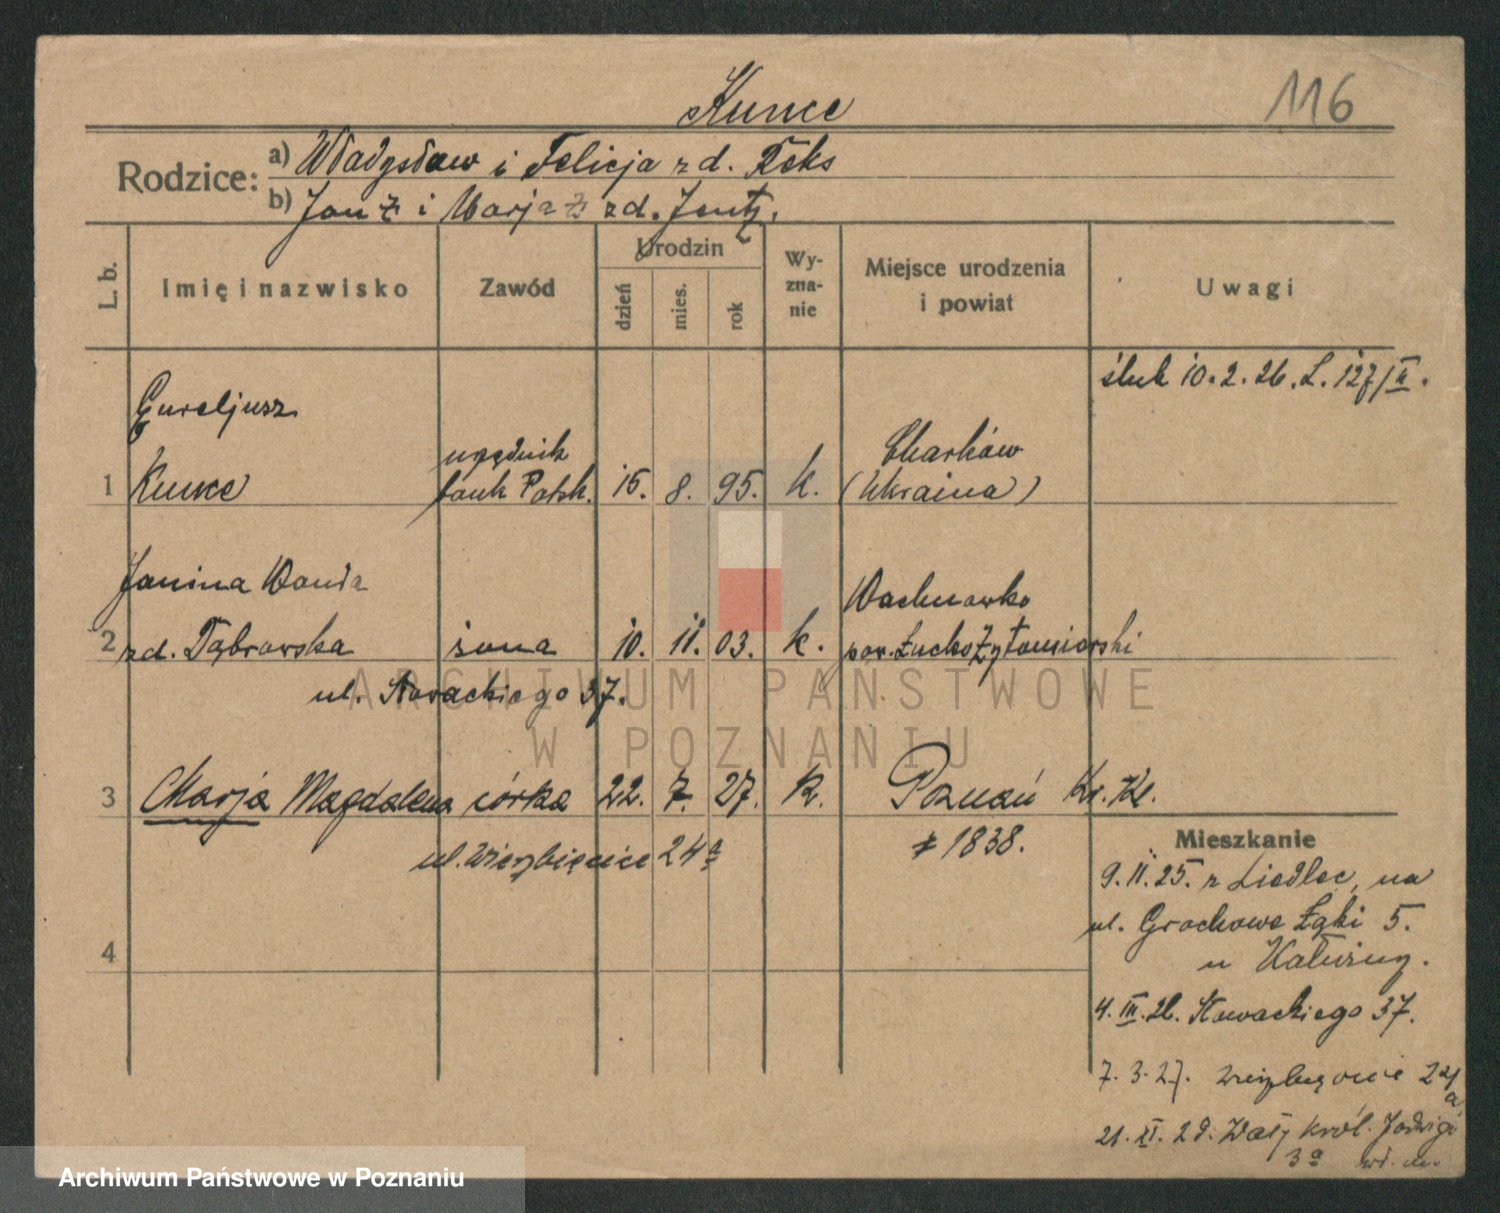 Kunce
116
Rodzice:
a) Władysław i Felicja z d. Teks
b) Jan i Marja zd. Jentz.
L. b.
Imię i nazwisko
Zawód
Urodzin
dzień
mies.
rok
Wy-
zna-
nie
Miejsce urodzenia
i powiat
Uwagi
ślub 10. 2. 26. L. 127/II.
Eureljusz
urzędnik
Charków
1 Kunce
bank Polsk. 15. 8. 95. k. (Ukraina)
Janina Wanda
Wachnowka
2 zd. Dąbrowska żona 10. 11. 03. k. pow. Żytomierski
ul. Nowackiego 37.
3 Marja Magdalena córka 22. 7. 27. k. Poznań Kr. Kl.
ul. Wierzbięcice 24a
# 1838.
Mieszkanie
9. 11. 25. z Siedlec, na
ul. Grochowe Łąki 5.
4
u Kałużny.
4. III. 26. Nowackiego 37.
7. 3. 27. Wierzbięcice 24a
21. XI. 28. Wały król. Jadwigi
3a
ARCHIWUM PAŃSTWOWE
W POZNANIU
Archiwum Państwowe w Poznaniu